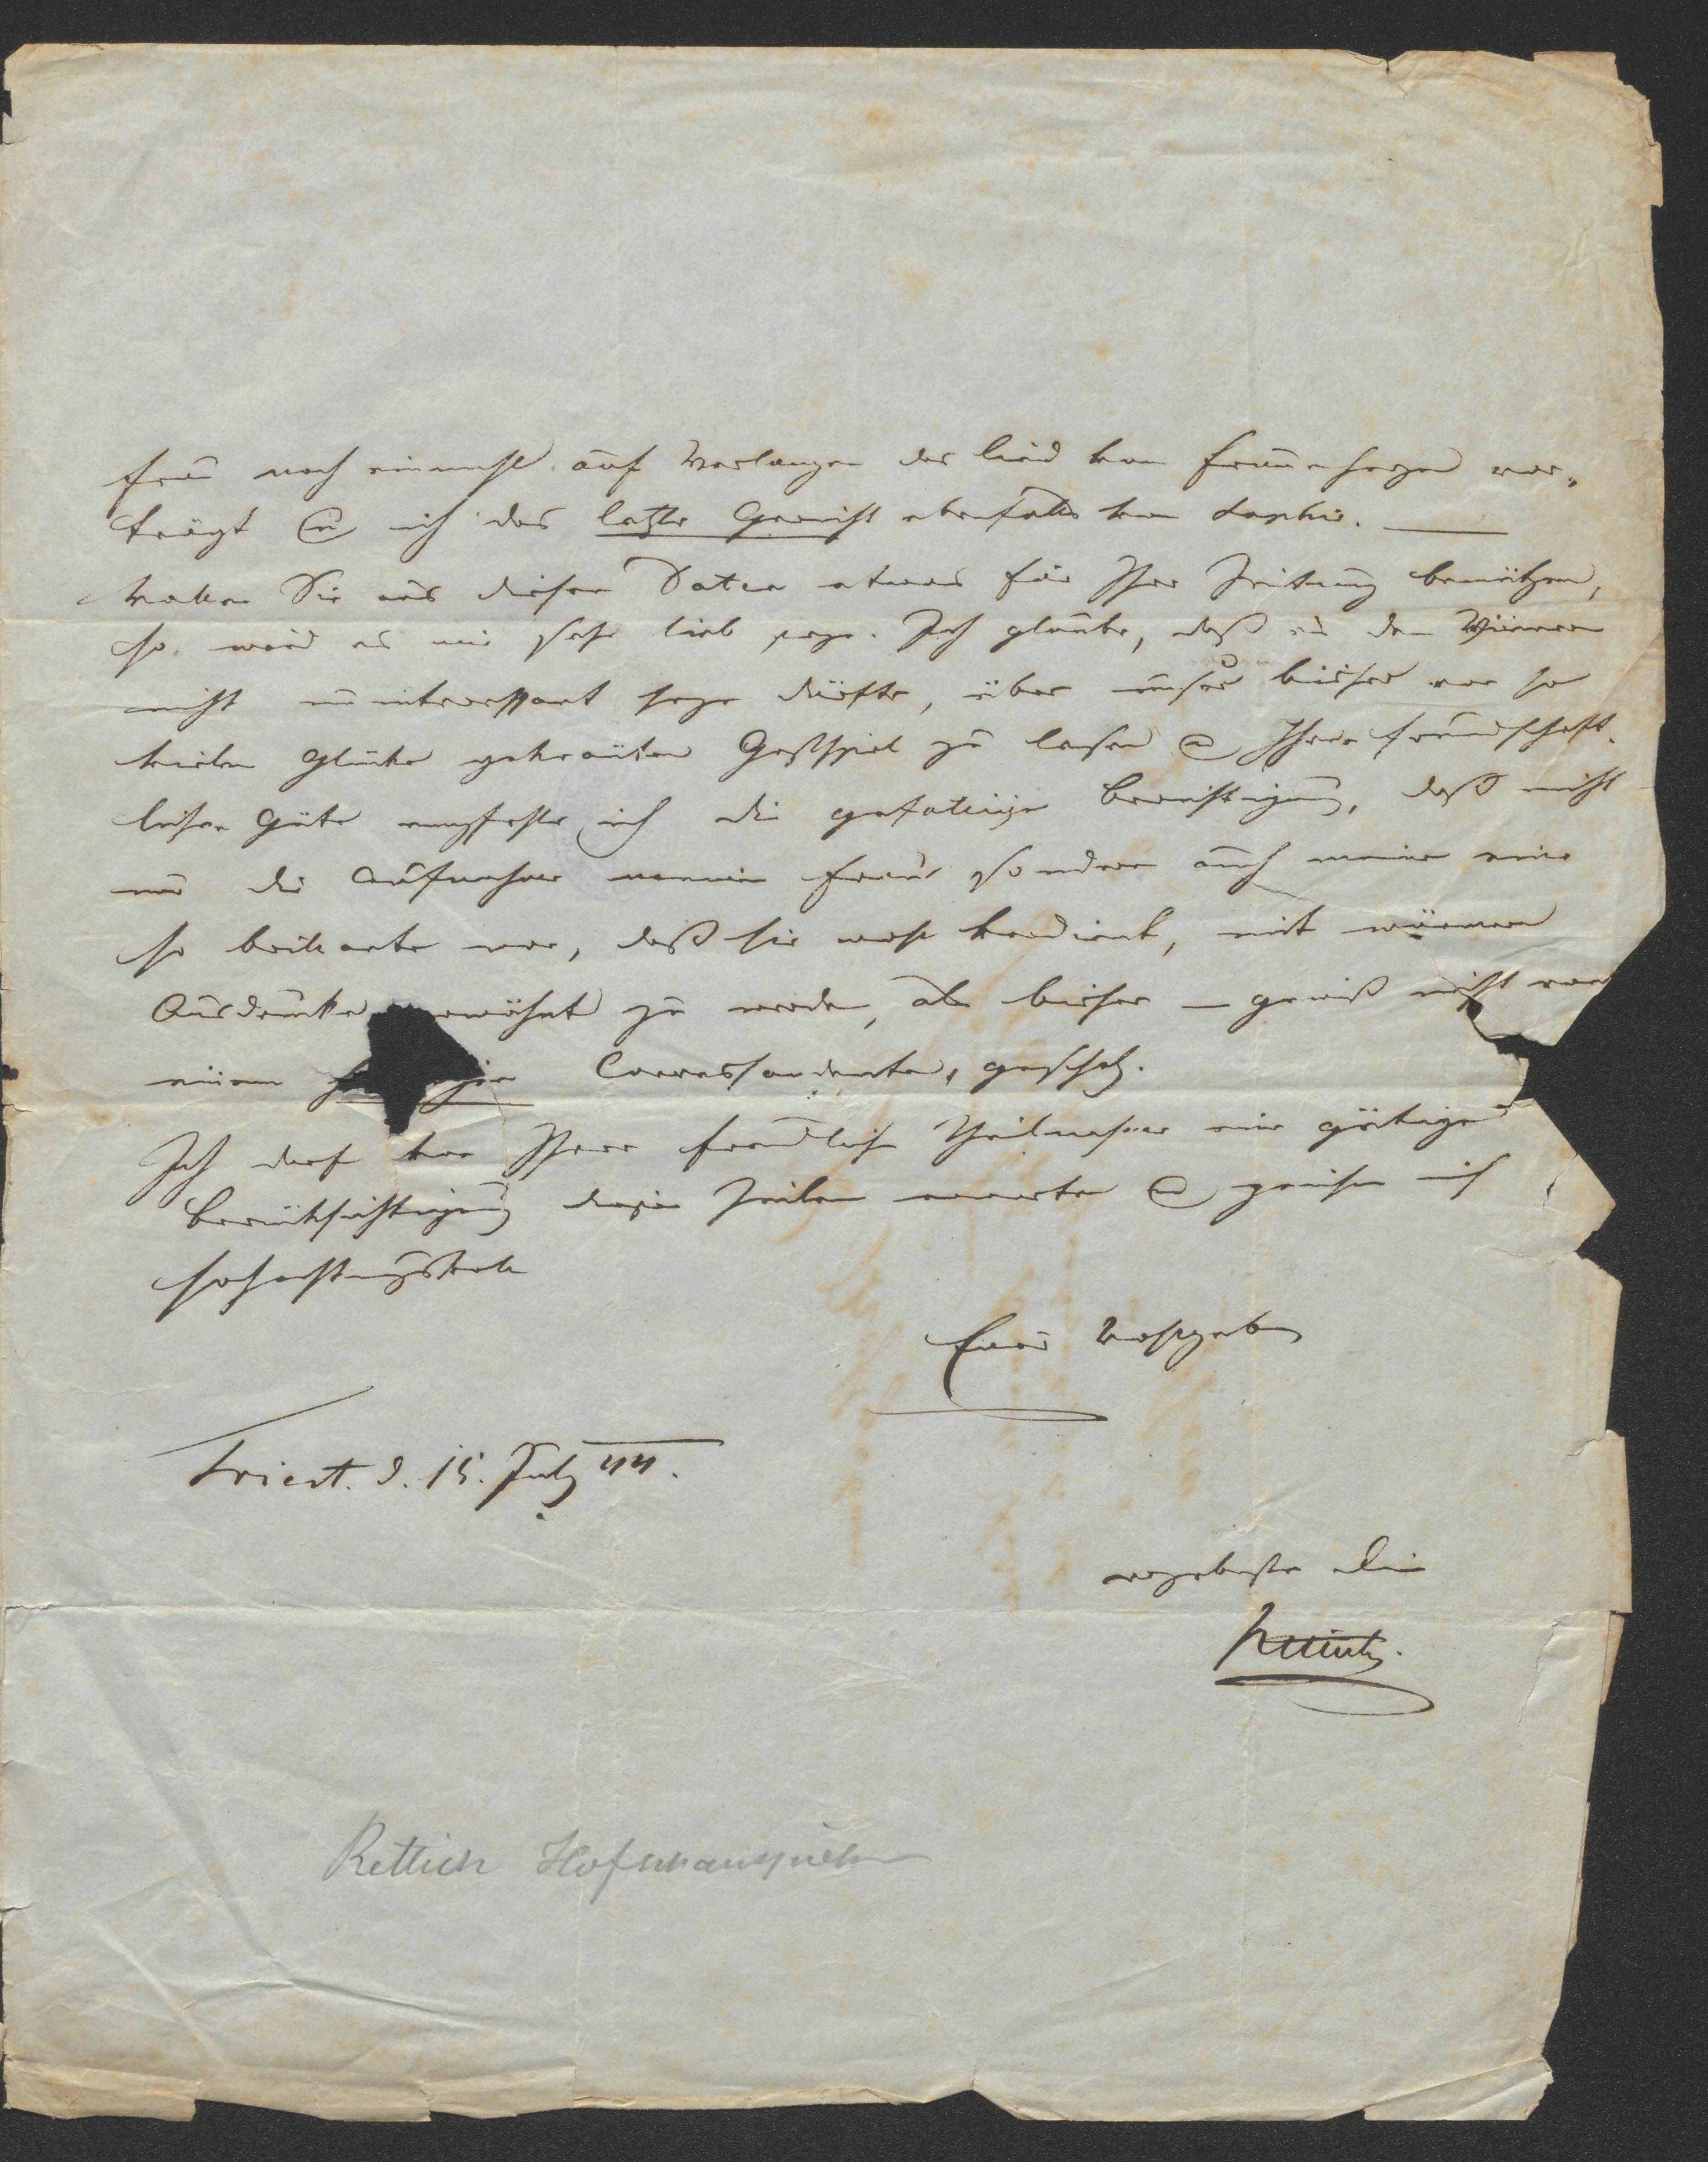 Frau noch einmahl auf Verlangen das Lied von Frauenherzen vor-
trägt & ich das letzte Gewicht ebenfalls von Saphir. —
Wollen Sie aus diesen Daten etwas für Ihre Zeitung benützen,
so wird es mir sehr lieb seyn. Ich glaube, daß es den Wienern
nicht uninteressant seyn dürfte, über unser bisher von so
vielem Glücke gekröntes Gastspiel zu lesen & Ihrer freundschaft-
lichen Güte empfehle ich die gefällige Berichtigung, daß nicht
nur die Aufnahme meiner Frau sondern auch meine eine
so brillante war, daß sie wohl verdient, mit wärmern
Ausdrücken erwähnt zu werden, als bisher — gewiß nicht von
einem Correspondenten, geschah.
Ich darf von Ihrer freundlichen Theilnahme eine gütige
Berücksichtigung dieser Zeilen erwarten & zeichne mich
hochachtungsvoll
Euer Wohlgeb
Triest. d. 15. July 44.
ergebenster Diener
Rettich.
Rettich Hofschauspieler